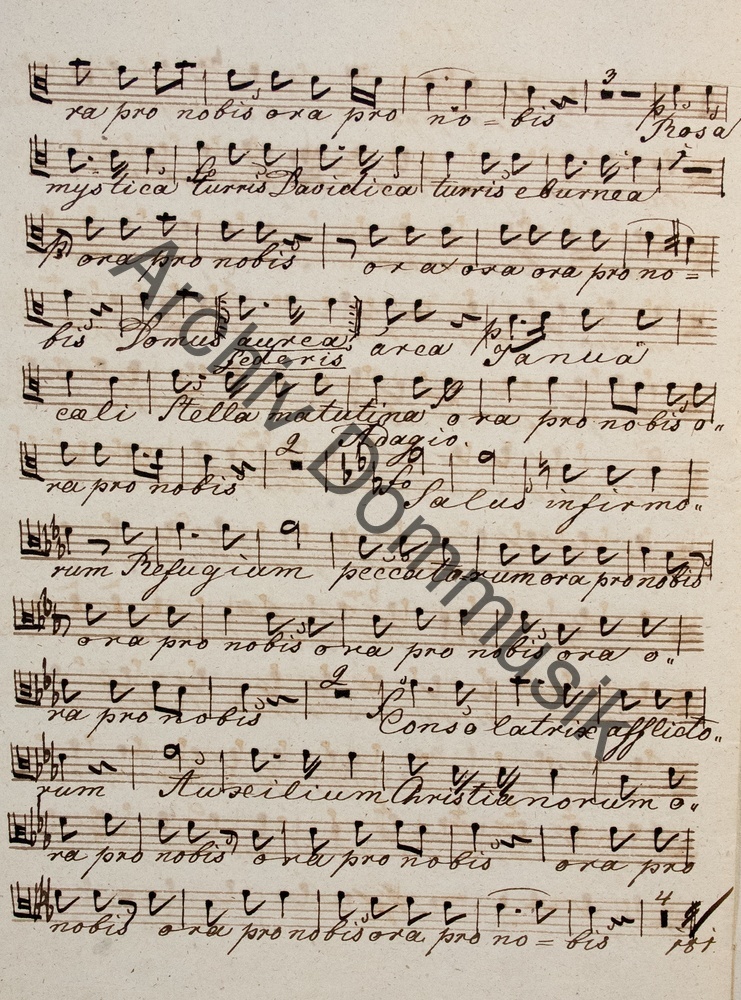 ra pro nobis ora pro no = bis 3 p Rosa
mystica turris Davidica turris eburnea 1
p ora pro nobis ora ora ora pro no =
bis Domus aurea arca p Janua
federis
cæli Stella matutina ora pro nobis o"
Adagio.
ra pro nobis 2 fo Salus infirmo"
rum Refugium peccato-rum ora pro nobis
ora pro nobis ora pro nobis ora o"
ra pro nobis 2 f Consolatrix afflicto"
rum Auxilium Christianorum o"
ra pro nobis ora pro nobis ora pro
nobis ora pro nobis ora pro no = bis 4
Archiv Dommusik